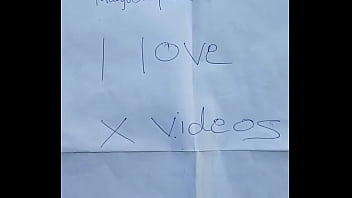 I love
X videos